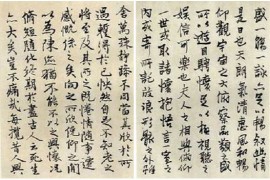 盛一觴一詠亦足以暢敘幽情
是日也天朗氣清惠風和暢
仰觀宇宙之大俯察品類之盛
所以遊目騁懷足以極視聽之
娛信可樂也夫人之相與俯仰
一世或取諸懷抱悟言一室之
內或寄所託放浪形骸之外雖
舍萬殊靜躁不同當其欣於所
遇蹔得於己怏然自足不知老之
將至及其所之既惓情隨事遷
感慨係之矣向之所欣俛仰之間
以為陳迹猶不能不以之興懷況
脩短隨化終期於盡古人云死生
亦大矣豈不痛哉每攬昔人興